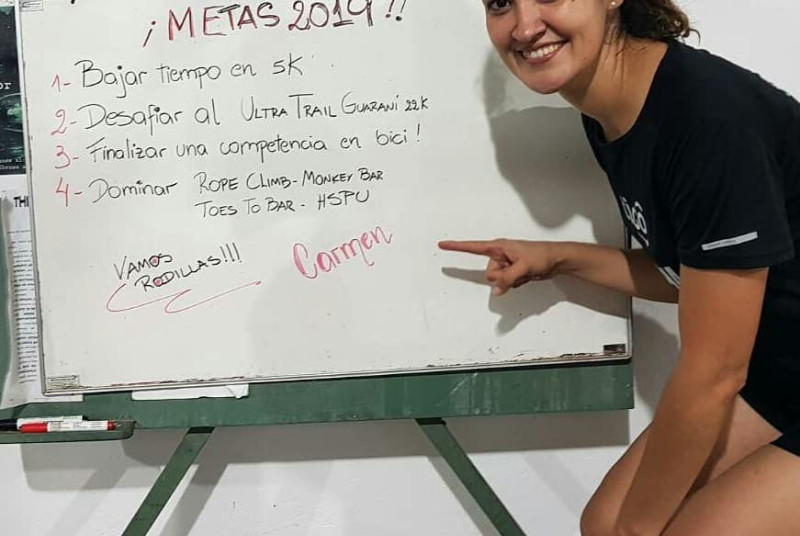 ¡METAS 2019!!
1- Bajar tiempo en 5K
2- Desafiar al ULTRA TRAIL GUARANÍ 22K
3- Finalizar una competencia en bici!
4- Dominar ROPE CLIMB - MONKEY BAR
TOES TO BAR - HSPU
VAMOS
RODILLAS!!!
Carmen